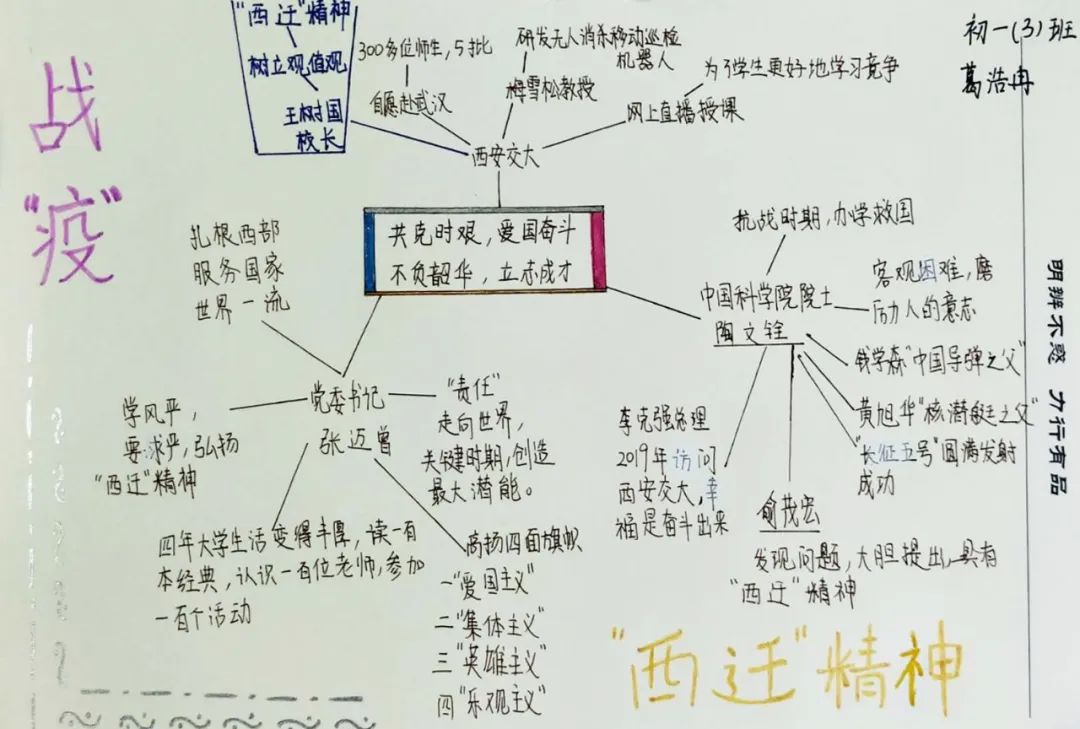 战
"疫"
"西迁"精神
树立观值观
王树国
校长
300多位师生，5批
自愿赴武汉
研发无人消杀移动巡检
机器人
梅雪松教授
为了学生更好地学习竞争
网上直播授课
西安交大
初一(3)班
葛浩冉
共克时艰，爱国奋斗
不负韶华，立志成才
扎根西部
服务国家
世界一流
党委书记
张迈曾
学风严，
要求严，弘扬
"西迁"精神
"责任"
走向世界，
关键时期，创造
最大潜能。
四年大学生活变得丰厚，读一百
本经典，认识一百位老师，参加
一百个活动
高扬四面旗帜
一"爱国主义"
二"集体主义"
三"英雄主义"
四"乐观主义"
抗战时期，办学救国
中国科学院院士
陶文铨
客观困难，磨
厉人的意志
钱学森"中国导弹之父"
黄旭华"核潜艇之父"
"长征五号"圆满发射
成功
李克强总理
2019年访问
西安交大，幸
福是奋斗出来
俞茂宏
发现问题，大胆提出，具有
"西迁"精神
"西迁"精神
明辨不惑 力行有品